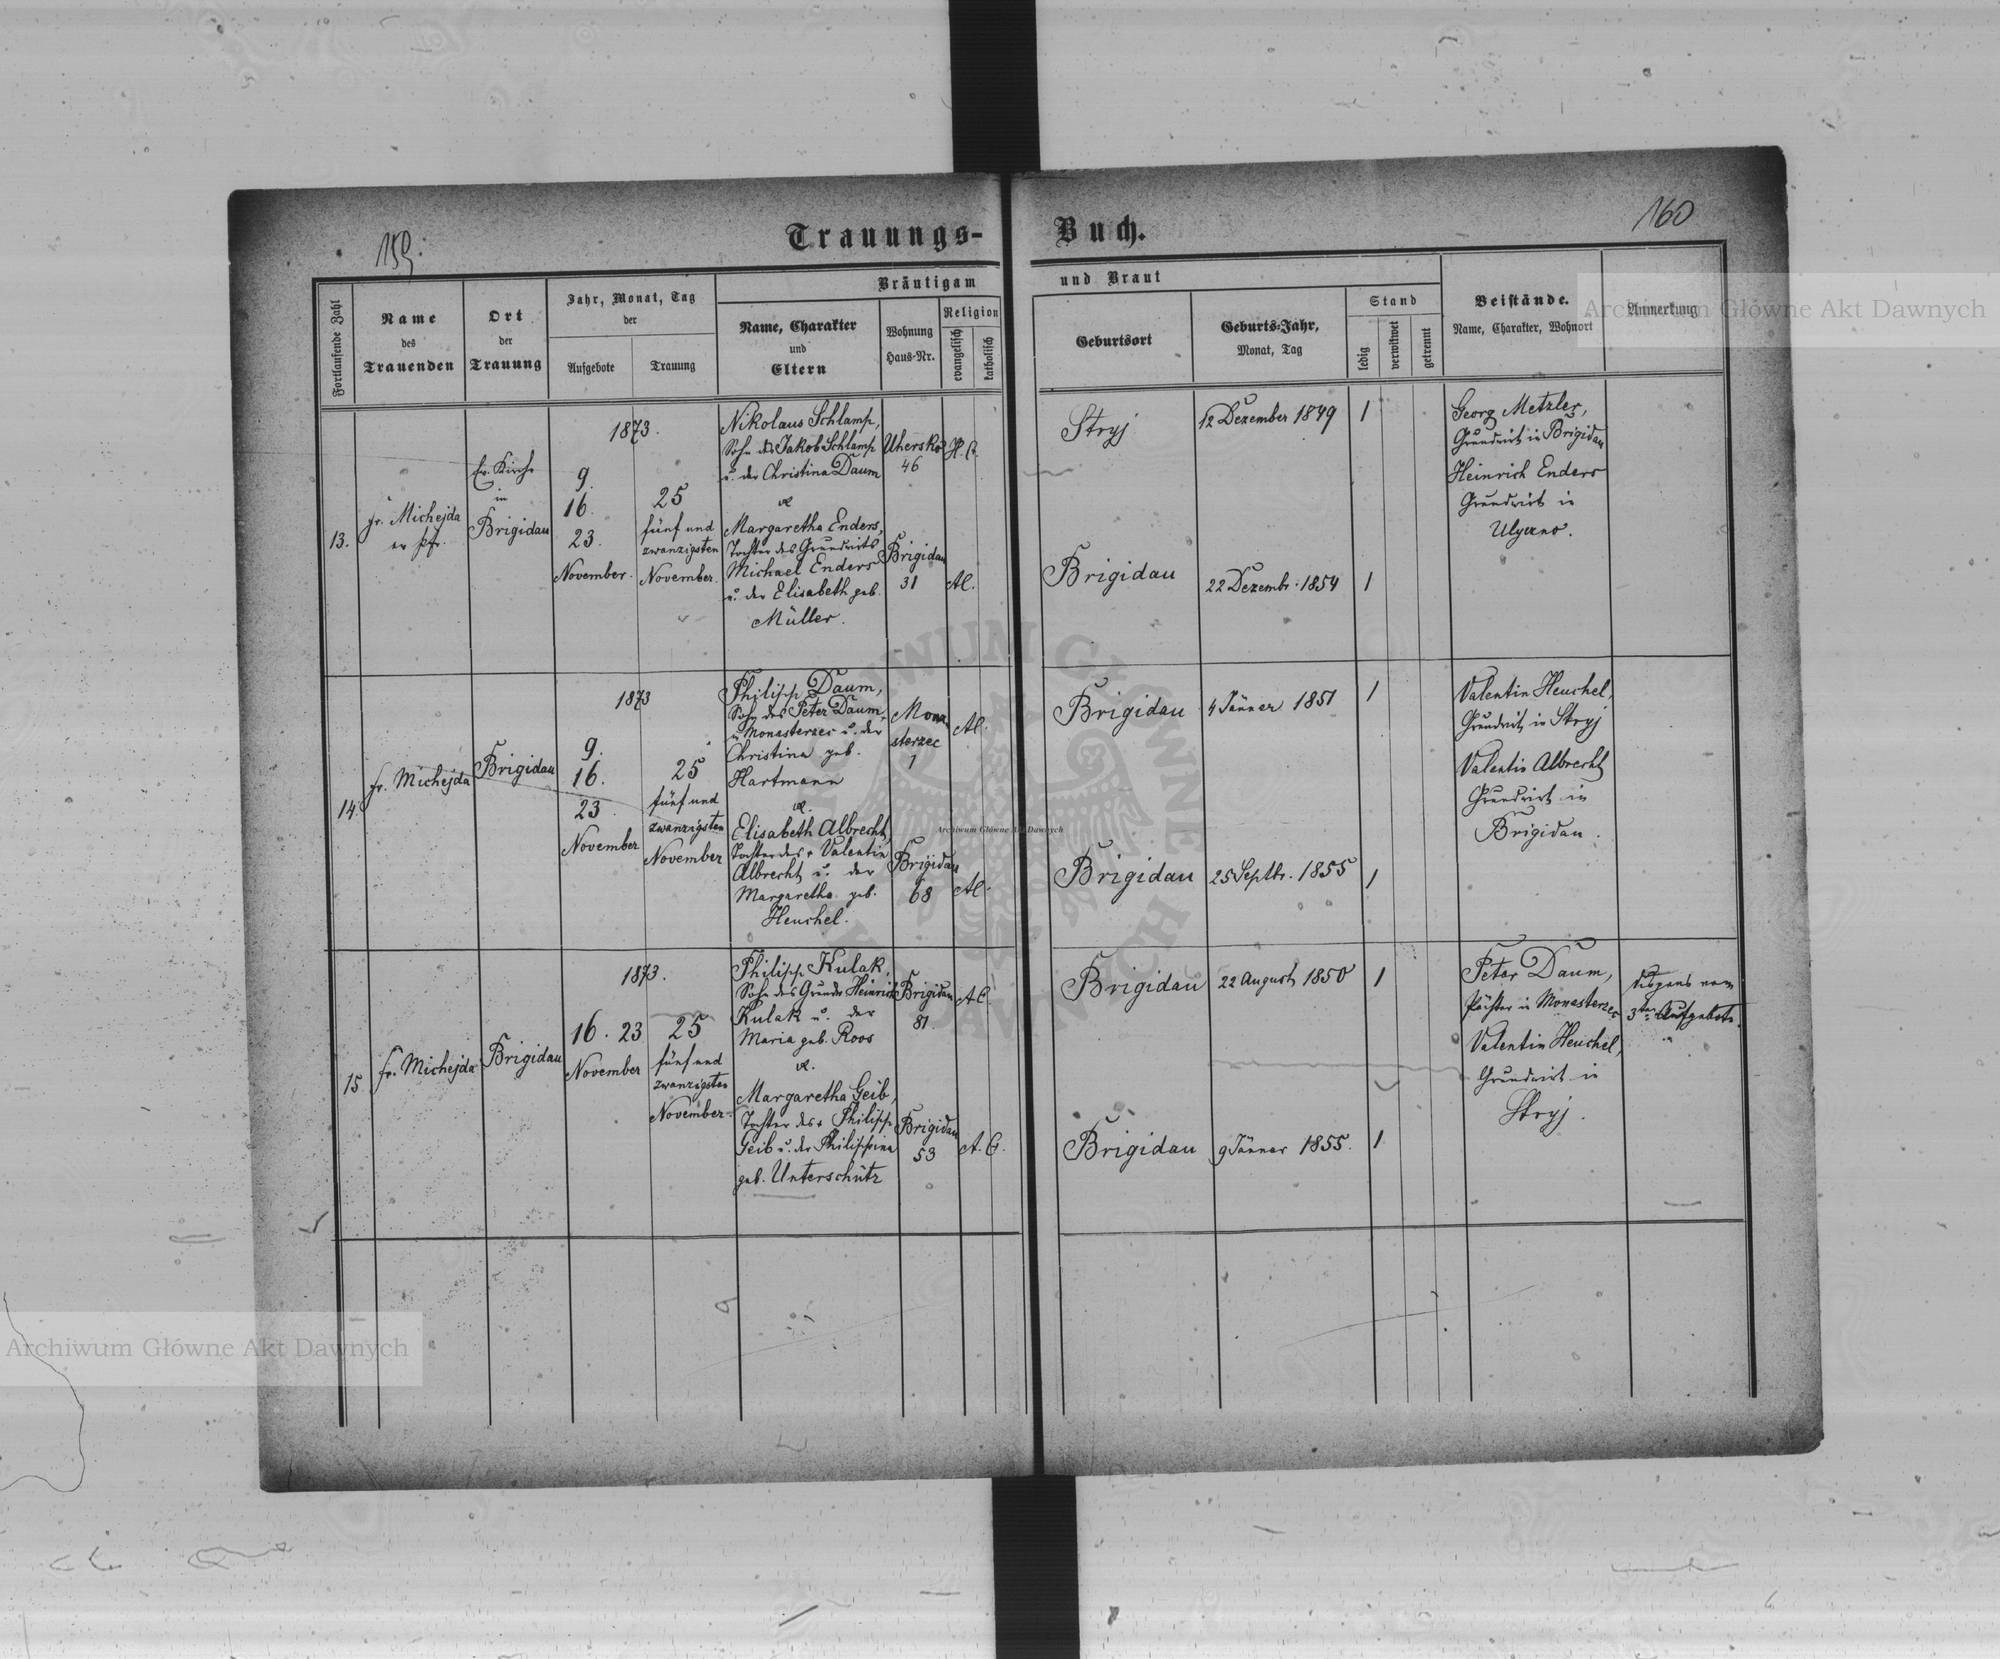 159.
Trauungs-
Buch.
160
Fortlaufende Zahl
Name
des
Trauenden
Ort
der
Trauung
Jahr, Monat, Tag
der
Aufgebote
Trauung
Bräutigam
Name, Charakter
und
Eltern
Wohnung
Haus-Nr.
Religion
evangelisch
katholisch
und Braut
Geburtsort
Geburts-Jahr,
Monat, Tag
Stand
ledig
verwitwet
getrennt
Beistände.
Name, Charakter, Wohnort
Anmerkung
13.
fr. Michejda
ev. Pfr.
Ev. Kirche
in
Brigidau
1873.
9.
16.
23.
November.
25
fünf und
zwanzigsten
November.
Nikolaus Schlamp,
Sohn des Jakob Schlamp
u. der Christina Daum
Margaretha Enders,
Tochter des Grundwirts
Michael Enders
u. der Elisabeth geb.
Müller.
Uhersko
46
Brigidau
31
Stryj
Brigidau
12 Dezember 1849
22 Dezembr. 1854
1
1
Georg Metzler,
Grundwirt in Brigidau
Heinrich Enders
Grundwirt in
14.
fr. Michejda
Brigidau
1873
9.
16.
23
November
25
fünf und
zwanzigsten
November
Philipp Daum,
Sohn des Peter Daum,
in Monasterzec u. der
Christina geb.
Hartmann
Elisabeth Albrecht,
Tochter des + Valentin
Albrecht u. der
Margaretha geb.
Heuchel.
Mona-
sterzec
1
Brigidau
68
Brigidau
Brigidau
4 Jänner 1851
25 Septbr. 1855
1
1
Valentin Heuchel,
Grundwirt in Stryj
Valentin Albrecht
Grundwirt in
Brigidau.
15.
fr. Michejda
Brigidau
1873.
16. 23
November
25
fünf und
zwanzigsten
November
Philipp Kulak,
Sohn des Grundw. Heinrich
Kulak u. der
Maria geb. Roos
Margaretha Geib,
Tochter des + Philipp
Geib u. der Philippina
geb. Unterschütz
Brigidau
81.
Brigidau
53
A. C.
A. C.
Brigidau
Brigidau
22 August 1850
9 Jänner 1855.
1
1
Peter Daum,
Pächter in Monasterzec
Valentin Heuchel,
Grundwirt in
Stryj.
Dispens vom
3ten Aufgebote.
Archiwum Główne Akt Dawnych
Archiwum Główne Akt Dawnych
Archiwum Główne Akt Dawnych